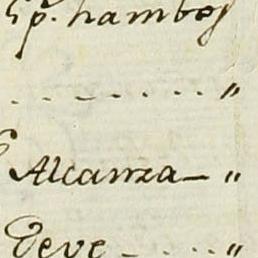 p. hambos
. . . . . . . . "
Alcanza — "
Deve - . . . "